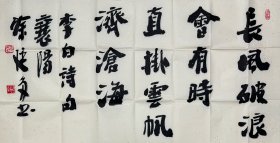 長風破浪
會有時
直掛雲帆
濟滄海
李白詩句
襄陽
徐